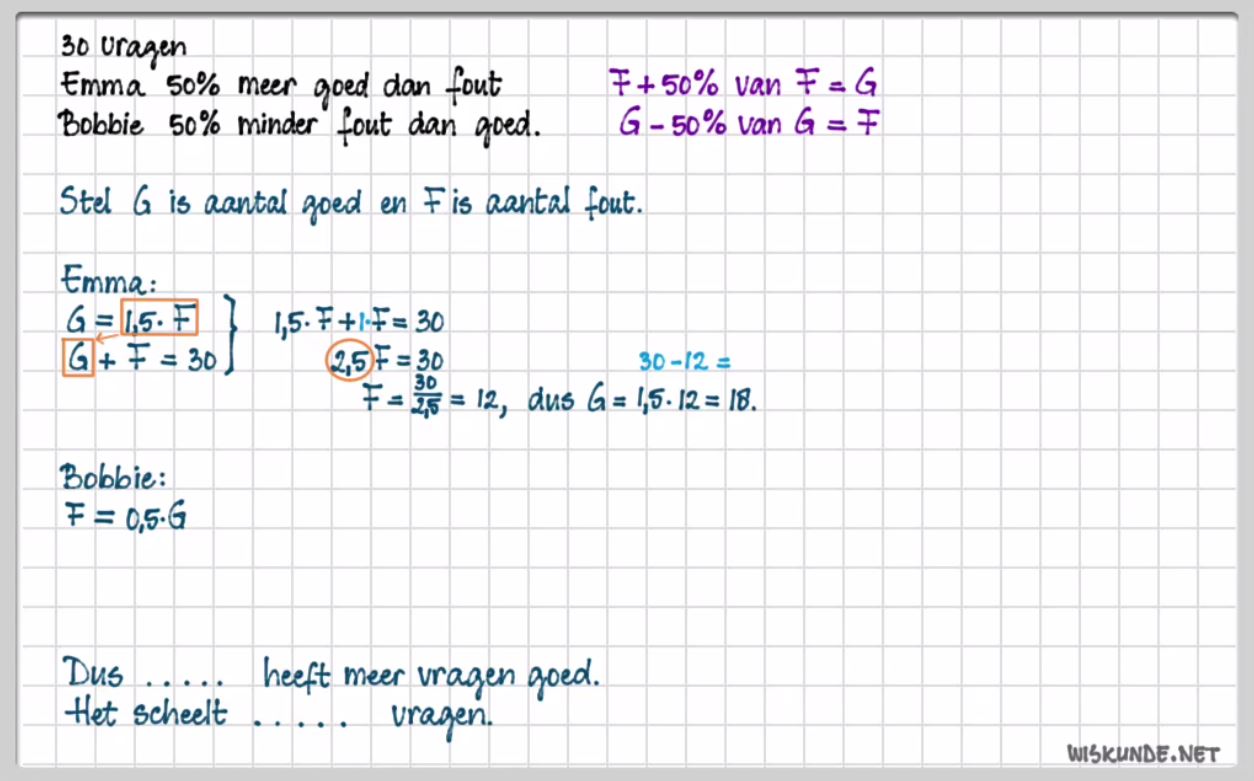 30 vragen
Emma 50% meer goed dan fout F + 50% van F = G
Bobbie 50% minder fout dan goed. G - 50% van G = F
Stel G is aantal goed en F is aantal fout.
Emma:
G = 1,5 · F } 1,5 · F + 1 · F = 30
G + F = 30 2,5 F = 30 30 - 12 =
F = 30/2,5 = 12, dus G = 1,5 · 12 = 18.
Bobbie:
F = 0,5 · G
Dus ..... heeft meer vragen goed.
Het scheelt ..... vragen.
WISKUNDE.NET